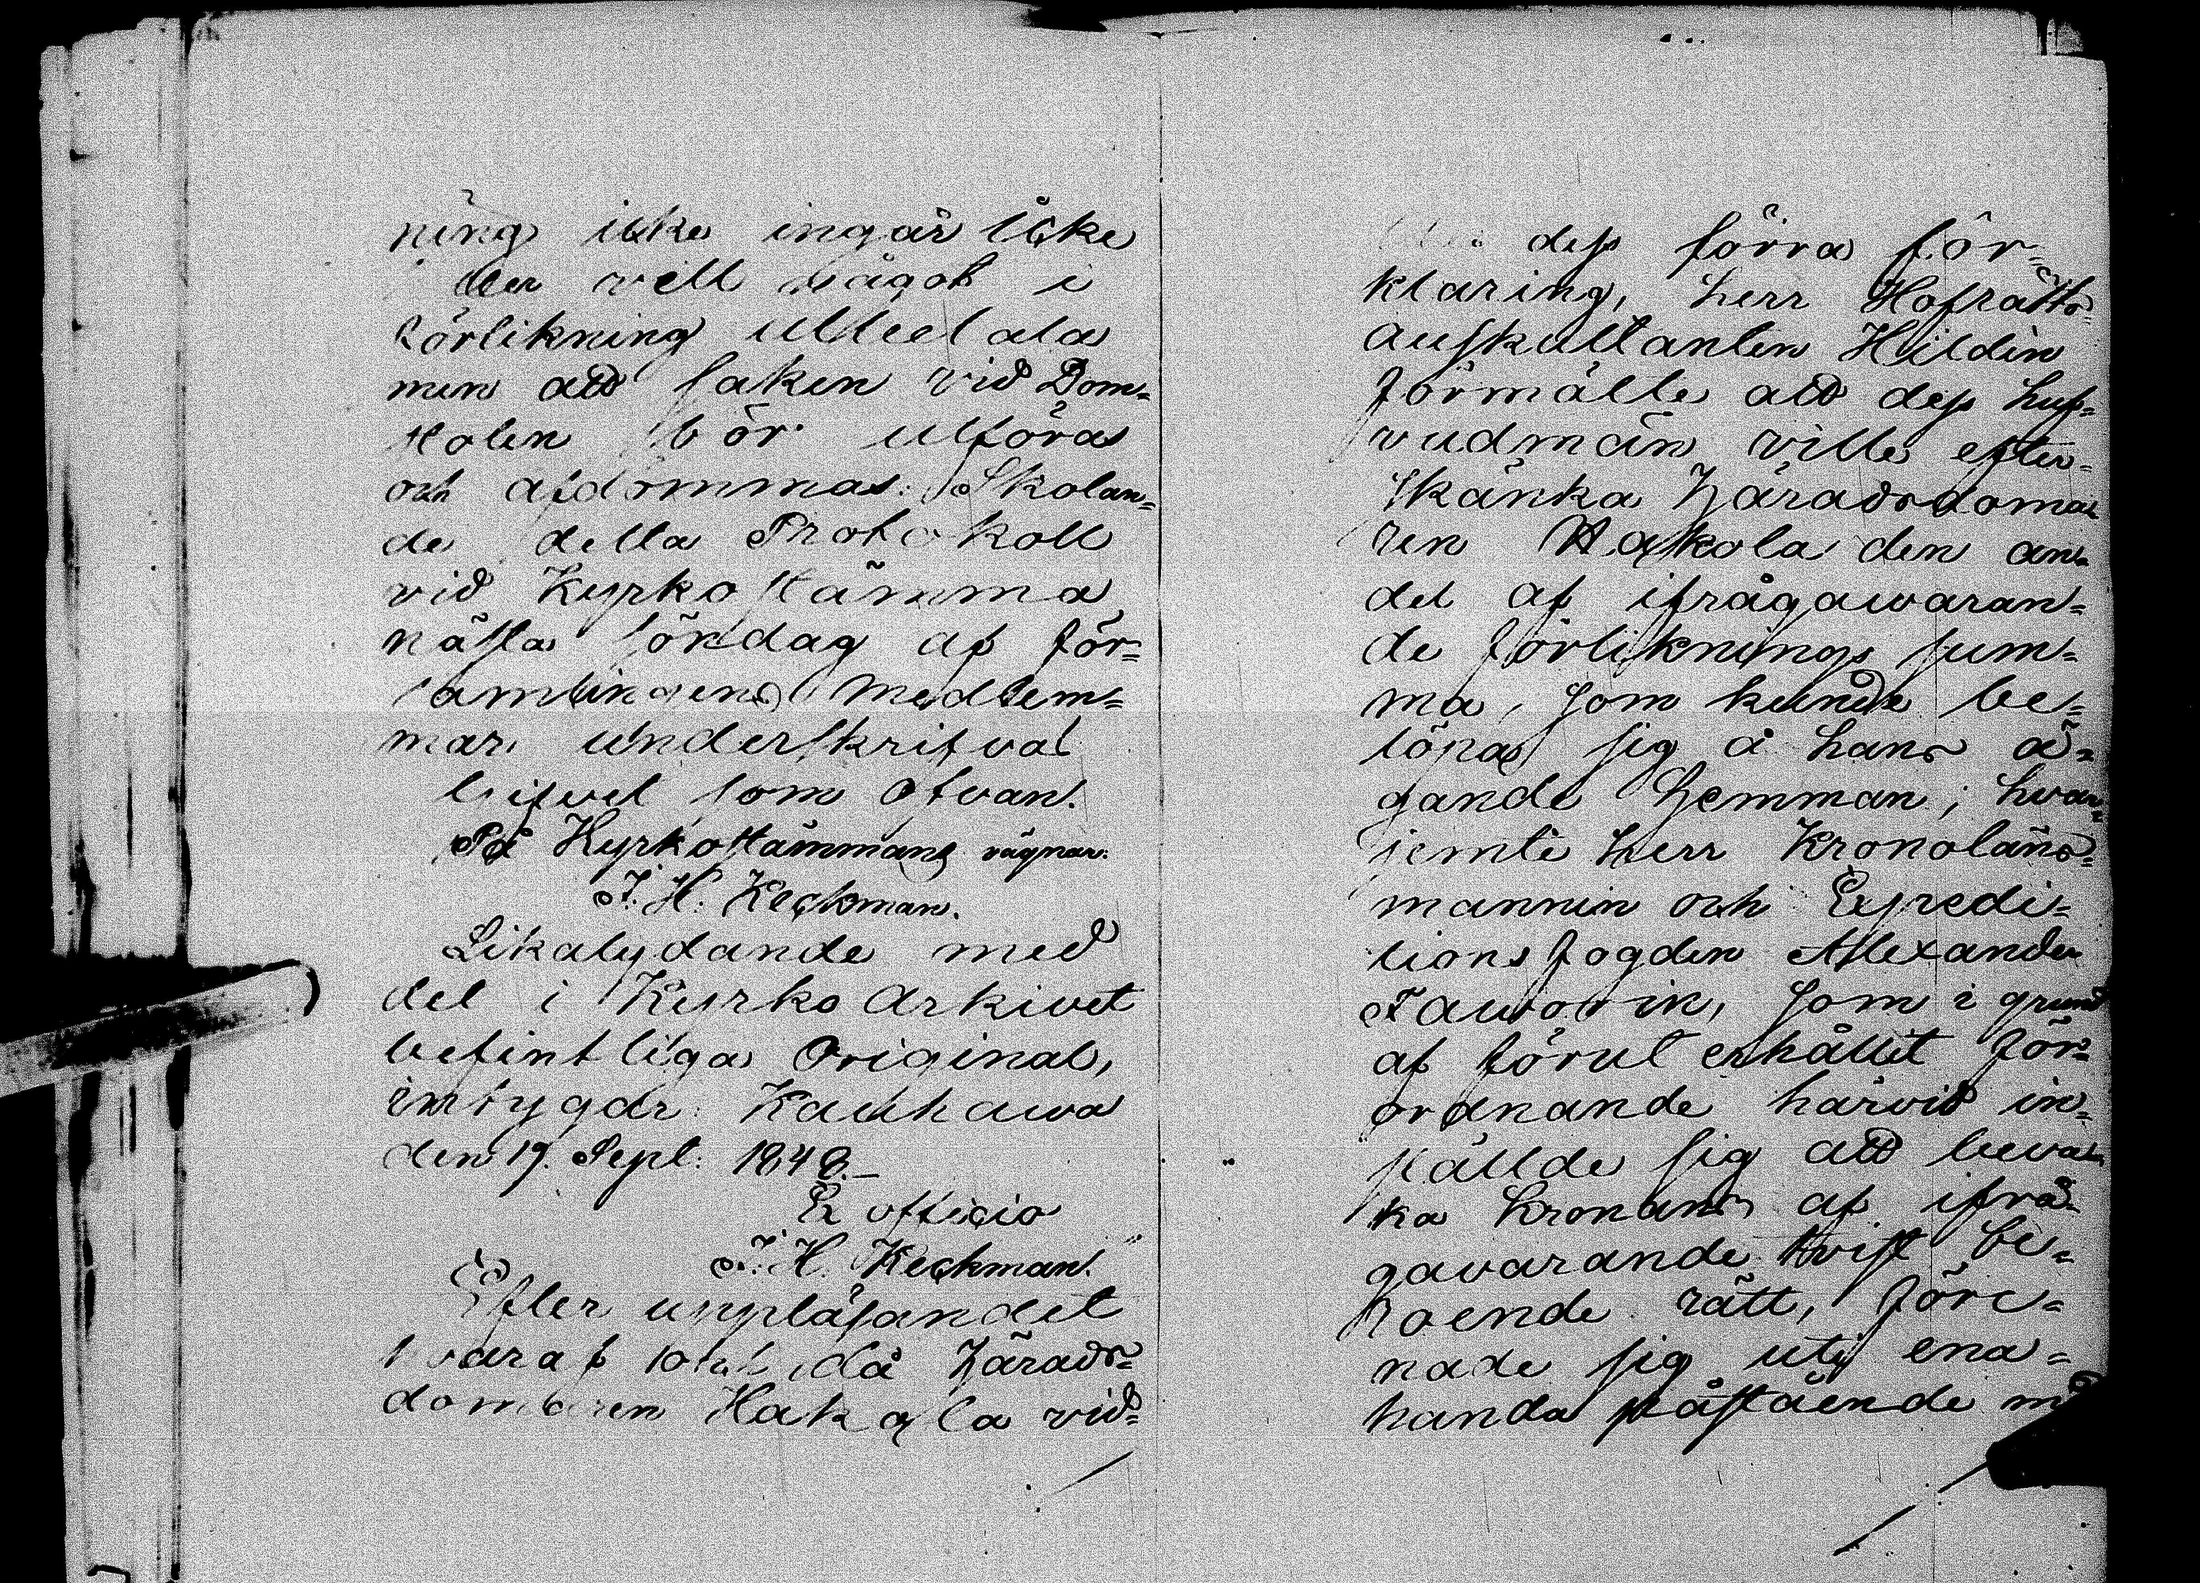 ning icke ingår icke
eller vill något i
förlikning utbetala
men att saken vid Dom¬
stolen bör utföras
och afdömmas. Skolan¬
de detta Protokoll
vid Kyrkostämma
nästa söndag af för¬
samlingens medlem¬
mar underskrifvas
blifvet som ofvan.
På Kyrkostämmans vägnar:
J. H. Keckman.
Likalydande med
det i Kyrko Arkivet
befintliga Original,
intygar Kauhawa
den 19. Sept: 1848.
Ex officio
J. H. Keckman.
Efter uppläsandet
hvaraf och då Härads¬
domaren Hakola vid¬
dess förra för¬
klaring, herr Hofrätts¬
auskultanten Hildèn
förmälte att dess huf¬
vudmän ville efter¬
skänka Häradsdoma¬
ren Hakola den an¬
del af ifrågawaran¬
de förliknings sum¬
ma, som kunde be¬
löpa sig å hans ä¬
gande hemman; hvar¬
jemte herr Kronoläns¬
mannen och Expedi¬
tionsfogden Alexander
Favorin, som i grund
af förut erhållit för¬
ordnande härvid in¬
ställde sig att beva¬
ka kronans af ifrå¬
gavarande tvist be¬
roende rätt, före¬
nade sig uti ena¬
handa påstående